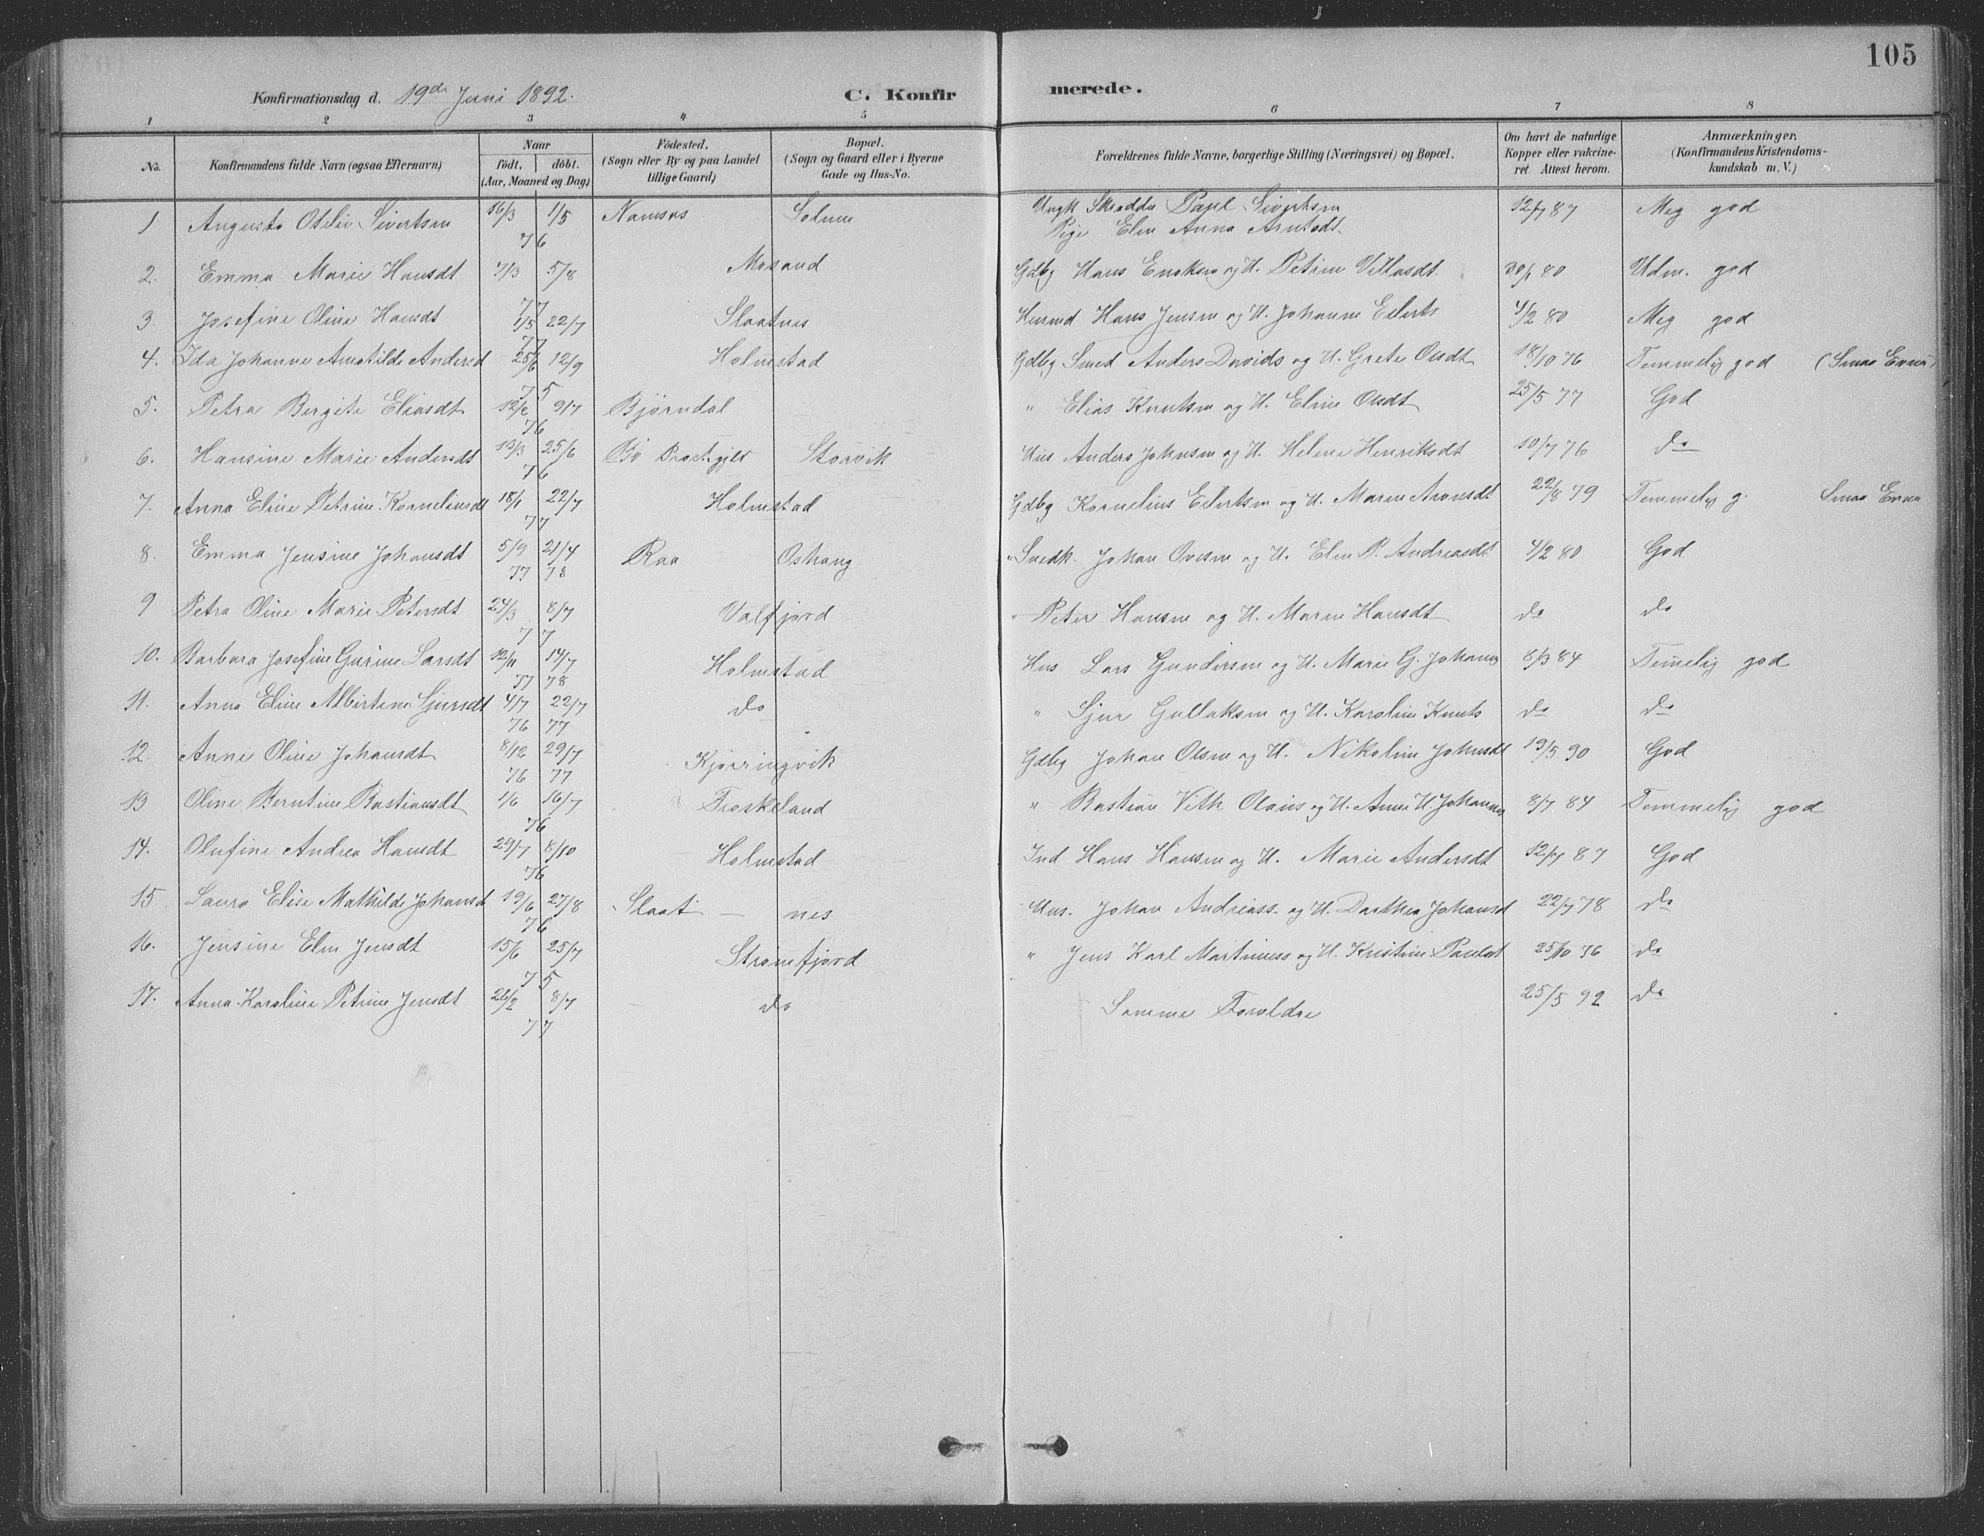 105
Konfirmationsdag d. 19de Juni 1892.
C. Konfirmerede.
1 2 3 4 5 6 7 8
No. Konfirmandens fulde Navn (ogsaa Efternavn) Naar født. døbt. (Aar, Maaned og Dag) Fødested. (Sogn eller By og paa Landet tillige Gaard) Bopæl. (Sogn og Gaard eller i Byerne Gade og Hus-No. Forældrenes fulde Navne, borgerlige Stilling (Næringsvei) og Bopæl. Om havt de naturlige Kopper eller vakcineret. Attest herom. Anmærkninger. (Konfirmandens Kristendomskundskab m. V.)
1 Augusta Sivertsen 16/3 1/5 76 Namsos Solum Ungk Pige Elen Anna 12/7 87 Meg god
2. Emma Marie Hansdt 7/3 5/8 77 Mosand Gdbg Hans og H. Petrine Villasdt 80 Udm. god
3. Josefine Oline Hansdt 1/5 22/7 77 Slaatnes Husmd Hans Jensen og H. Johanne Eilerts 4/2 80 Meg god
4. Ida Johanne Amatilde Andersd 25/6 12/9 75 Holmstad Gdbg Smed Anders Davids og H. Grete 18/10 76 Temmelig god (Smaa Evner)
5. Petra Bergite Eliasdt 12/2 9/7 76 Bjørndal " Elias Knutsen og H. Eline 25/5 77 God
6. Hansine Marie Andersdt 13/3 25/6 76 Bø Prestgjeld Storvik Hus Anders Johnsen og H. Helene Henriksdt 10/7 76 do
7. Anna Eline Petrine Korneliusdt 18/1 22/7 77 Holmstad Gdbg Kornelius Eilertsen og H. Maren Aronsdt 22/8 79 Temmelig g. Smaa Evner
8. Emma Jensine Johansdt 5/9 77 21/4 78 Raa Oshaug " Snedk. Johan Ovesen og H. Elen P. Andreasdt 4/2 80 God
9 Petra Oline Marie Petersdt 24/3 8/7 77 Valfjord " Peter Hansen og H. Maren Hansdt do do
10. Barbara Josefine Gurine Larsdt 12/11 77 14/7 78 Holmstad Hus Lars Gundersen og H. Marie G. Johans 8/3 84 Temelig god
11. Anna Eline Albertine Sjursdt 4/7 76 22/7 77 do " Sjur Gullaksen og H. Karoline Knuts do do
12. Anne Oline Johansdt 8/12 76 29/7 77 Kjørringvik Gdbg Johan Olsen og H. Nikoline Johnsdt 19/5 90 God
13 Oline Berntine Bastiansdt 1/6 16/7 76 Froskeland " Bastian Vith Olaus og H. Anne H. Johannes 8/7 84 Temmelig god
14. Olufine Andrea Hansdt 29/7 8/10 76 Holmstad Ind Hans Hansen og H. Marie Andersdt 12/7 87 God
15 Laura Elise Mathilde Johansd 19/6 27/8 76 Slaat – nes Hus. Johan Andreass. og H. Dorthea Johansd 22/7 78 do
16. Jensine Elen Jensdt 15/6 25/7 75 Strømfjord " Jens Karl Martiniuss og H. Kristine Paulsd 25/10 76 do
17. Anna Karoline Petrine Jensdt 26/2 8/7 77 do Samme Foreldre 25/5 92 do